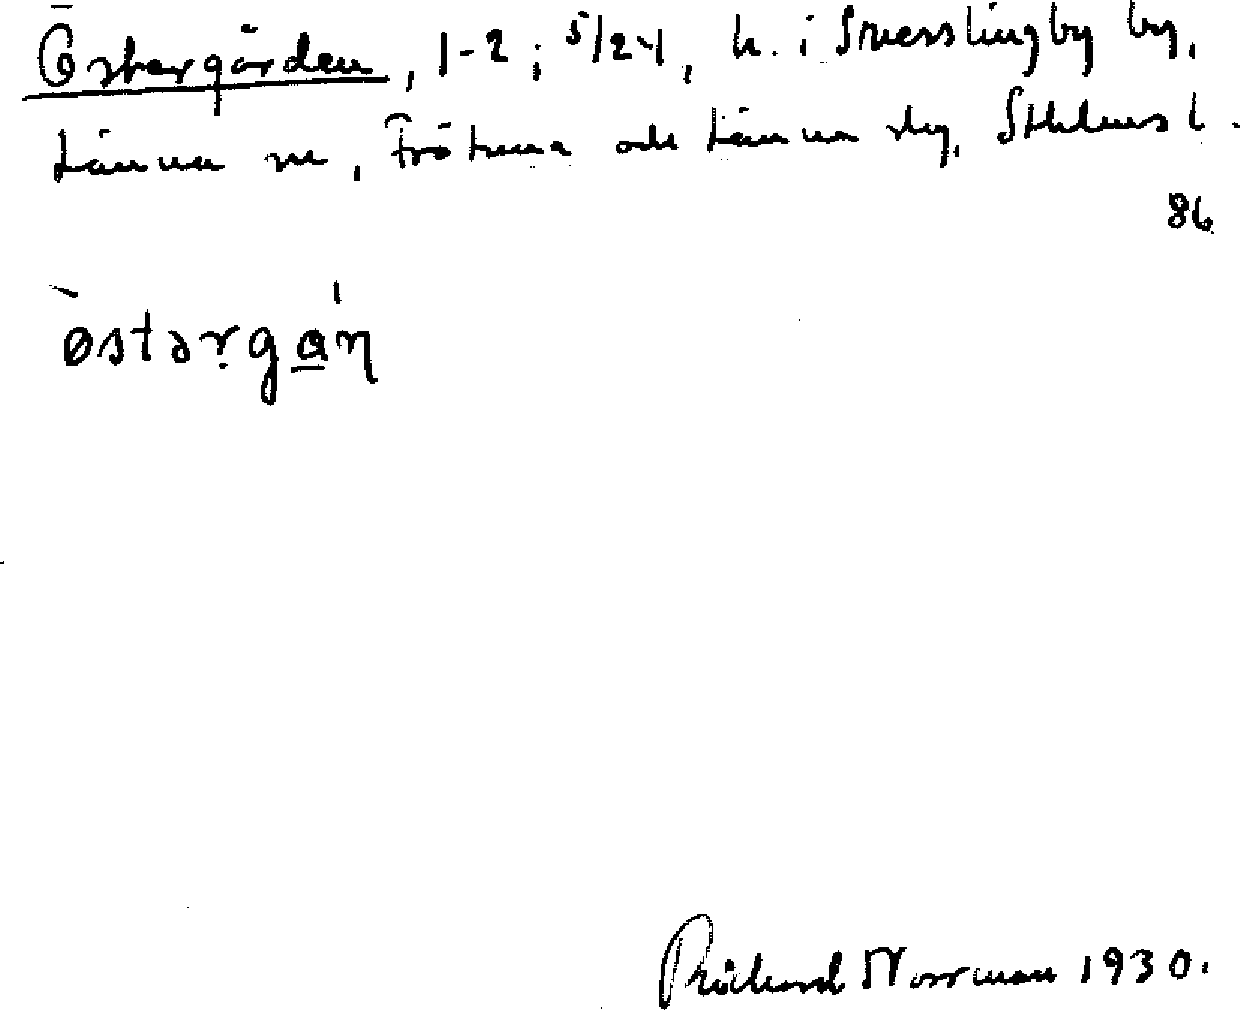 Östergården, 1-2; 5/24, h. i Smersslingby by,
Länna sn, Frötuna och Länna skg, Sthlms l.
86
østərgɑ̱́ɳ
Richard Norrman 1930.